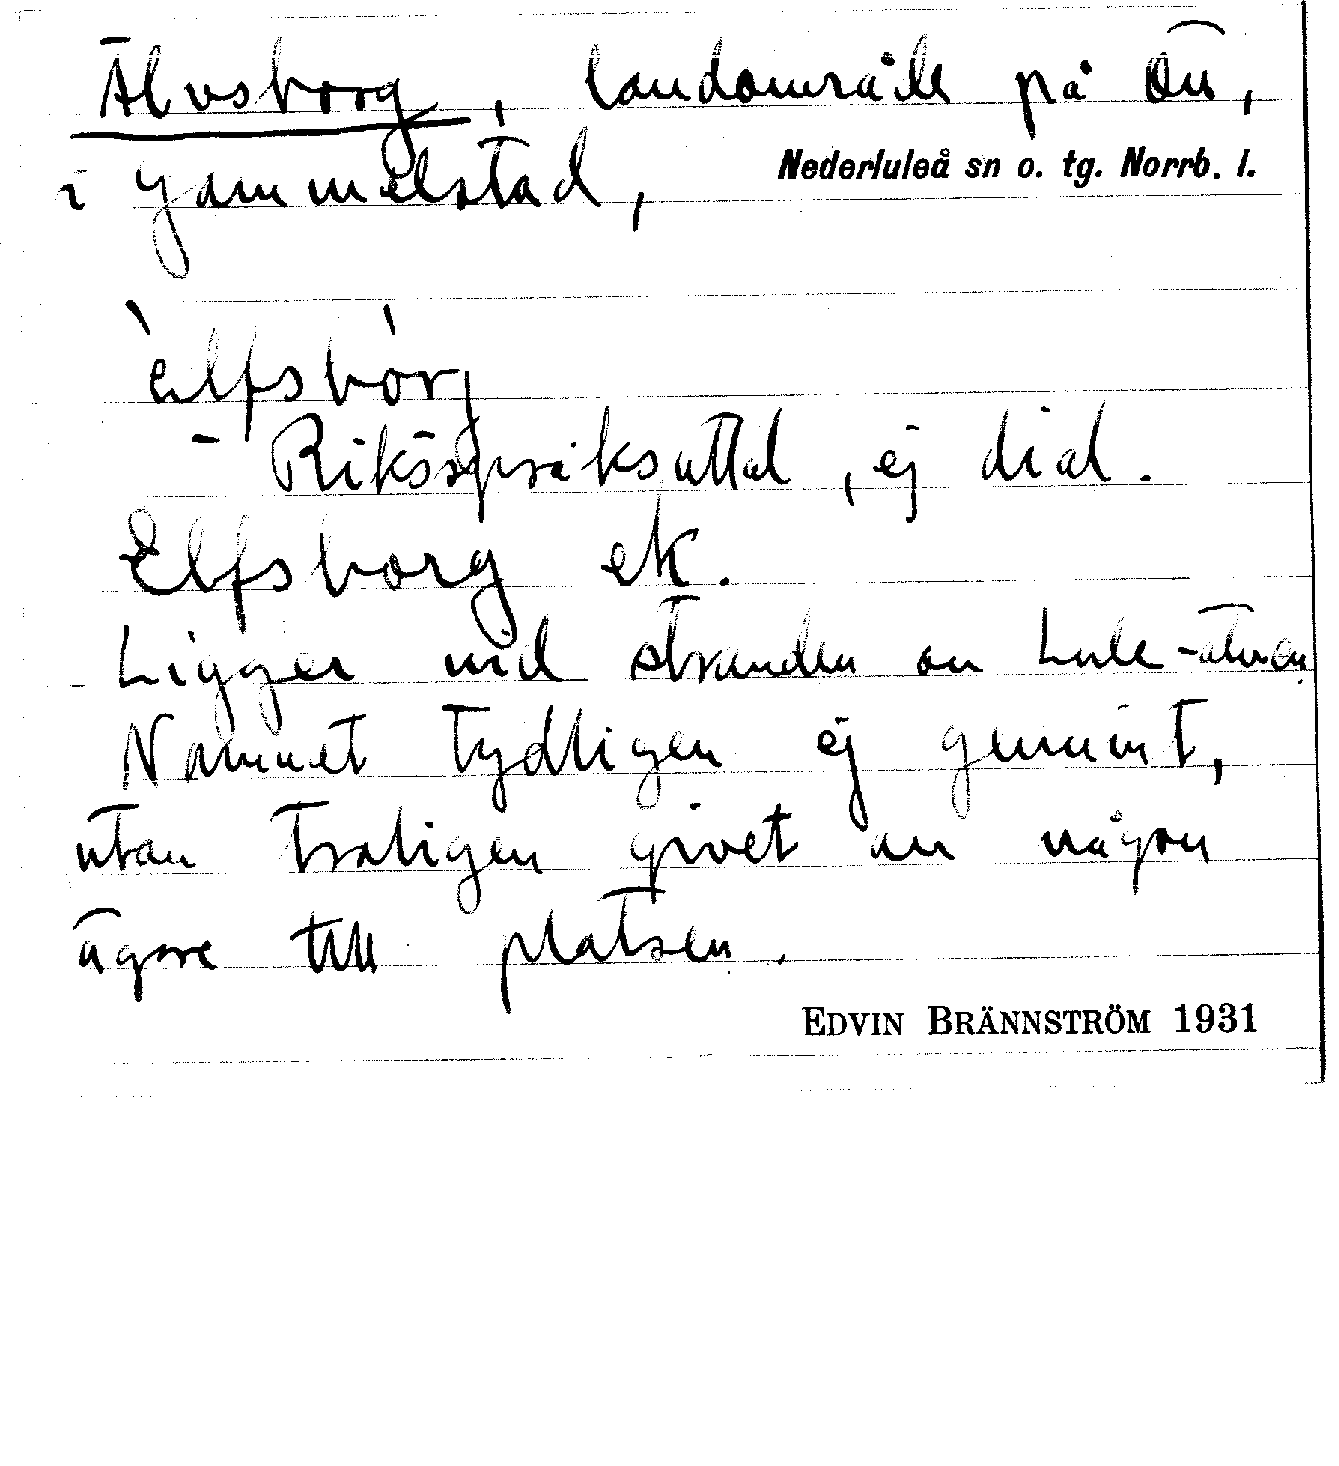 Älvsborg, landområde på Ön,
Nederluleå sn o. tg. Norrb. l.
i gammelstad,
`elfsbórg
- Riksspråksuttal, ej dial.
Elfsborg ek.
Ligger vid stranden av Lule-älven.
Namnet tydligen ej genuint,
utan troligen givet av någon
ägare till platsen.
EDVIN BRÄNNSTRÖM 1931